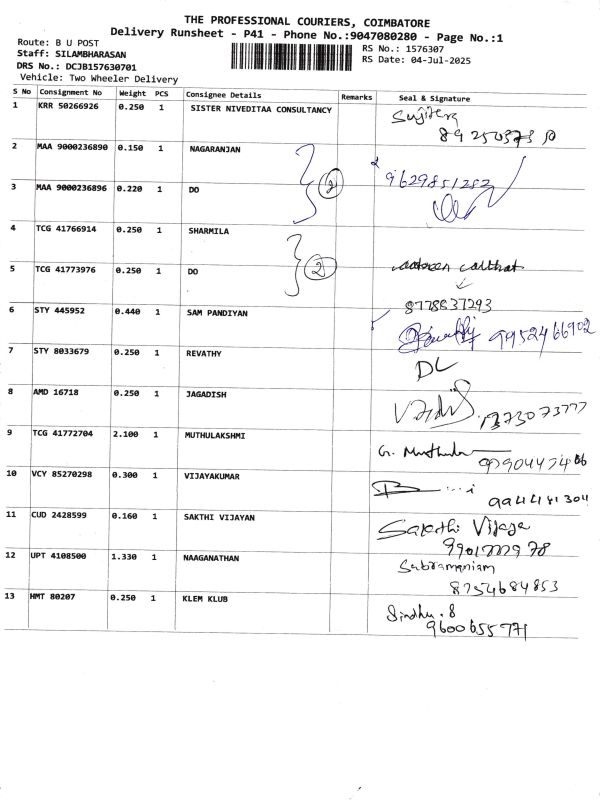 THE PROFESSIONAL COURIERS, COIMBATORE
Delivery Runsheet - P41 - Phone No.:9047080280 - Page No.:1
Route: B U POST
Staff: SILAMBHARASAN
DRS No.: DCJB157630701
Vehicle: Two Wheeler Delivery
RS No.: 1576307
RS Date: 04-Jul-2025
S No Consignment No Weight PCS Consignee Details Remarks Seal & Signature
1 KRR 50266926 0.250 1 SISTER NIVEDITAA CONSULTANCY
2 MAA 9000236890 0.150 1 NAGARANJAN
2
9629851252
3 MAA 9000236896 0.220 1 DO
4 TCG 41766914 0.250 1 SHARMILA
2
5 TCG 41773976 0.250 1 DO
8778837293
6 STY 445952 0.440 1 SAM PANDIYAN
9952466902
7 STY 8033679 0.250 1 REVATHY
DL
8 AMD 16718 0.250 1 JAGADISH
9 TCG 41772704 2.100 1 MUTHULAKSHMI
G. Muthula
10 VCY 85270298 0.300 1 VIJAYAKUMAR
11 CUD 2428599 0.160 1 SAKTHI VIJAYAN
Sakthi Vijaya
12 UPT 4108500 1.330 1 NAAGANATHAN
Subramaniam
8754684853
13 HMT 80207 0.250 1 KLEM KLUB
Sindhu.B
9600655771